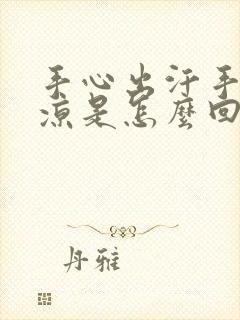 手心出汗手
凉是怎麽回
丹雅